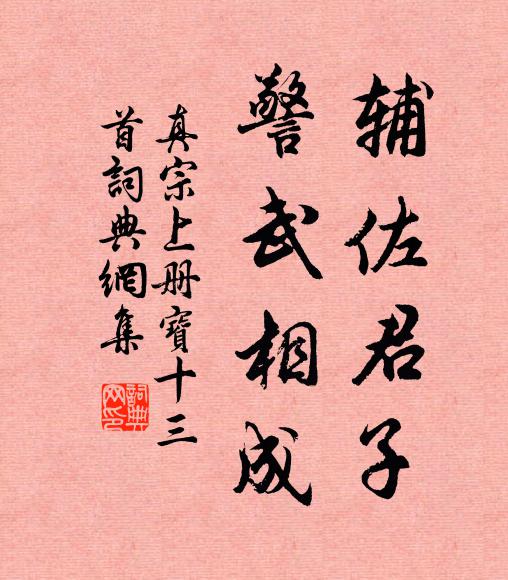 辅佐君子
警武相成
真宗上册寳十三
首詞典網集
詞典
网印